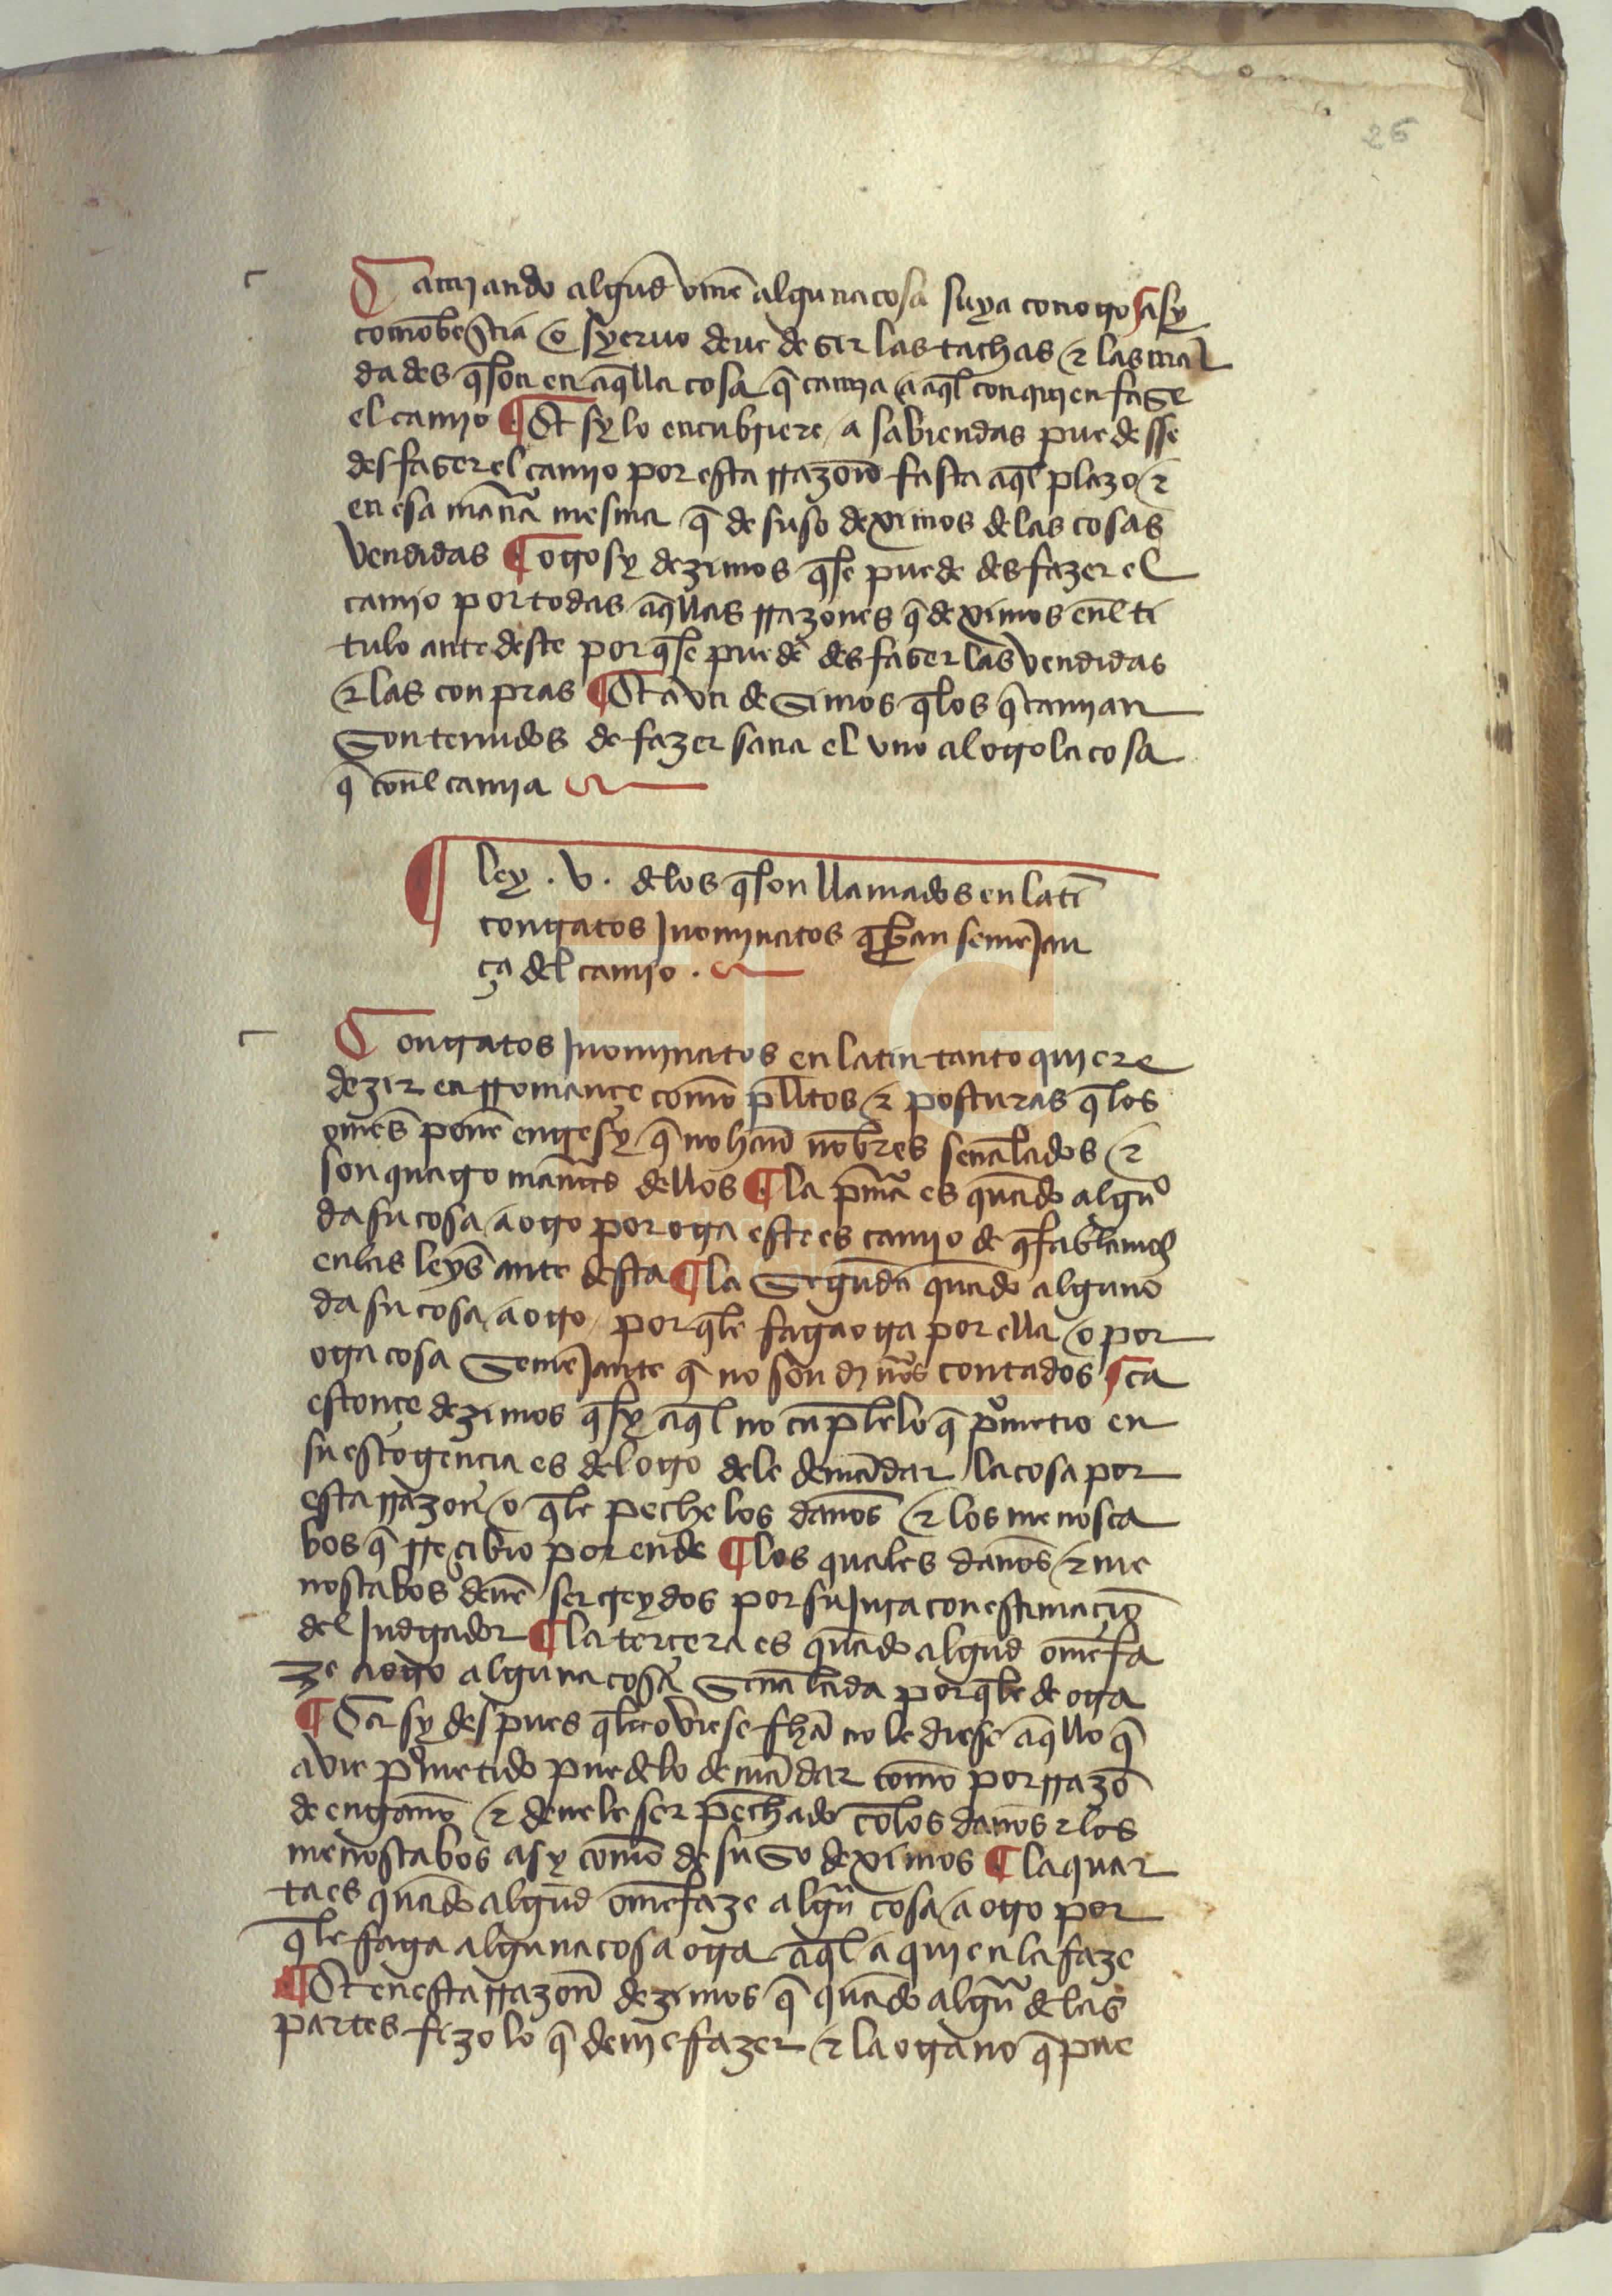 26
Camiando algund ome alguna cosa suya con otro asy
como bestia o syeruo deue deser las tachas & las mal
dades q̃ son en aq̃lla cosa q̃ camia a aq̃l con quien fase
el camio ¶ Et sy lo encubriere a sabiendas puedesse
desfaser el camio por esta rrazon fasta aq̃l plazo &
en esa man̄a mesma q̃ de suso deximos de las cosas
vendidas ¶ otrosy dezimos q̃ se puede desfazer el
camio por todas aq̃llas rrazones q̃ deximos en̄l ti
tulo ante deste por q̃ se puedẽ desfaser las vendidas
& las conpras ¶ Et avn desimos q̃ los q̃ camian
son tenudos de fazer sana el vno al otro la cosa
q̃ con̄l camia
¶ ley . v . delos q̃ son llamados en latĩ
contratos Jnominatos q̃ han semeJan
ça del camio .
Contratos Jnominatos en latin tanto quiere
dezir en rromançe como pl̃itos & posturas q̃ los
omẽs ponẽ entresy q̃ no han nõbres senalados &
son quatro man̄as dellos ¶ la pm̃a es quãdo algũo
da su cosa a otro por otra este es camio de q̃ fablamos
en las leyes ante desta ¶ la segũda quãdo alguno
da su cosa a otro por q̃ le faga otra por ella o por
otra cosa semeJante q̃ no son din̄os contados ca
estonçe dezimos q̃ sy aq̃l no cunple lo q̃ pometio en
su escogencia es del otro dele demãdar la cosa por
esta rrazon o q̃ le peche los danos & los menosca
bos q̃ rreçibio por ende ¶ los quales danos & me
noscabos deuẽ ser creydos por su Jura con estimaçiõ
del Judgador ¶ la terçera es quãdo algund ome fa
ze a otro alguna cosa senalada por q̃ le de otra
¶ Ca sy despues q̃ la oviese fh̃a no le diese aq̃llo q̃
avie pometido puedelo demãdar como por rrazõ
de engano & deuele ser pechado cõ los danos & los
menoscabos asy como de suso deximos ¶ la quar
ta es quãdo algund ome faze algũa cosa a otro por
q̃ le faga alguna cosa otra aq̃l a quien la faze
¶ Et en esta rrazon dezimos q̃ quãdo algũa de las
partes fizo lo q̃ deuie fazer & la otra no q̃ pue